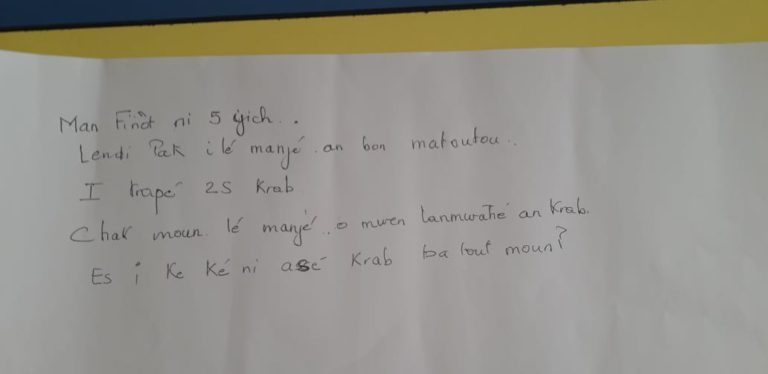 Man Finòt ni 5 yich..
Lendi Pak i lé manjé.an bon matoutou..
I trapé 25 Krab
Chak moun. lé manjé..o mwen lanmwatié an Krab.
Es i Ke Ké ni asé Krab ba tout moun?